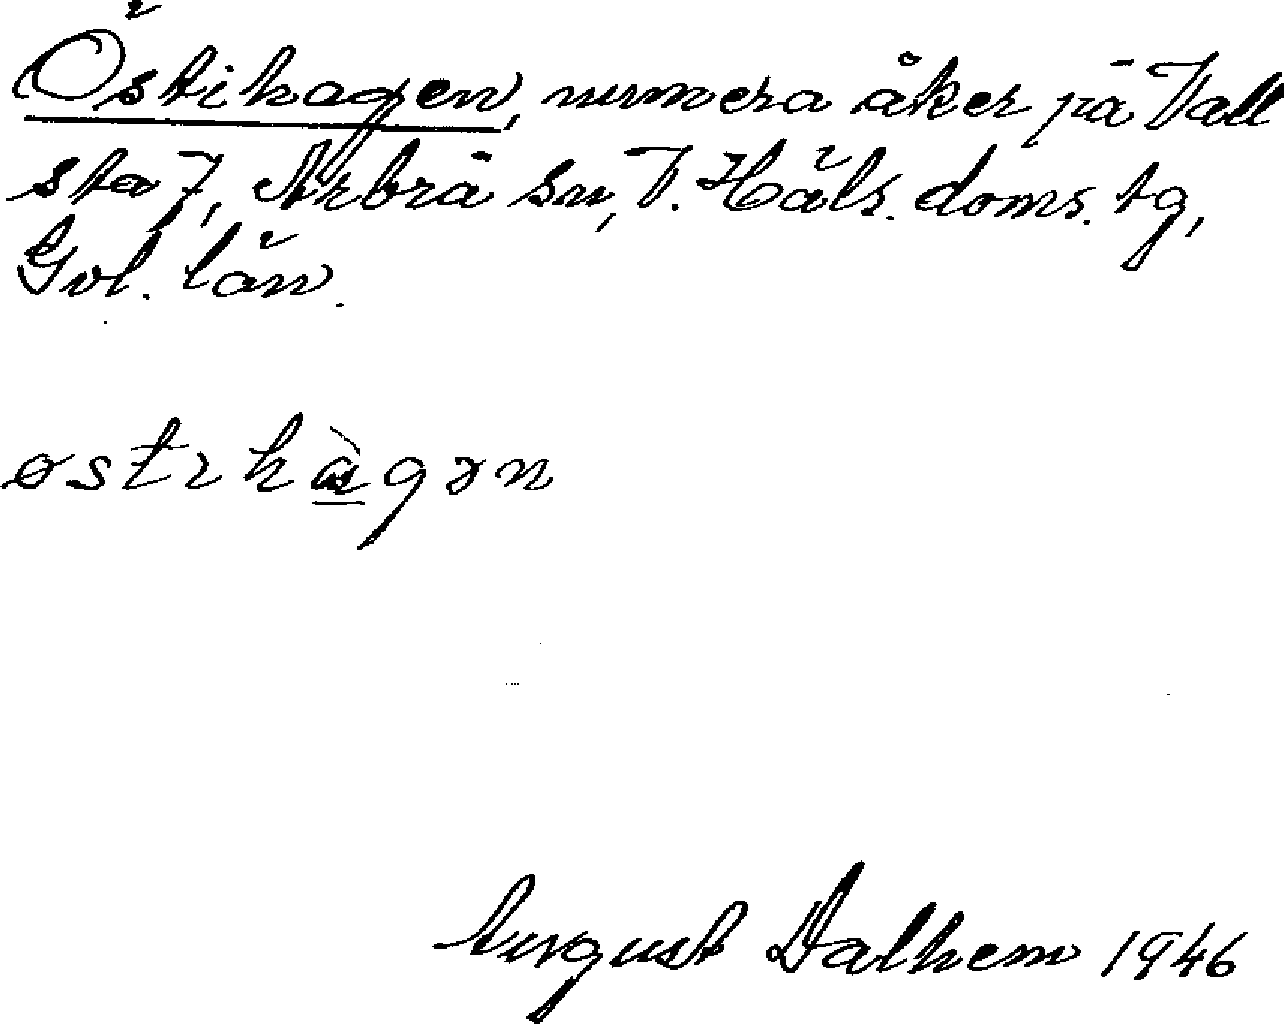 Östihagen, numera åker på Vall
sta 7, Arbrå sn, V. Häls. doms. tg,
Gvl. län.
østɩhàgən
August Dalhem 1946